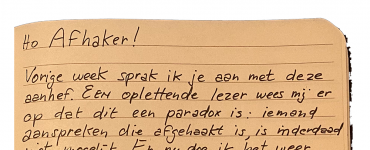 Ho Afhaker!
Vorige week sprak ik je aan met deze
aanhef. Een oplettende lezer wees mij er
op dat dit een paradox is: iemand
aanspreken die afgehaakt is, is inderdaad
niet mogelijk. En nu doe ik het weer